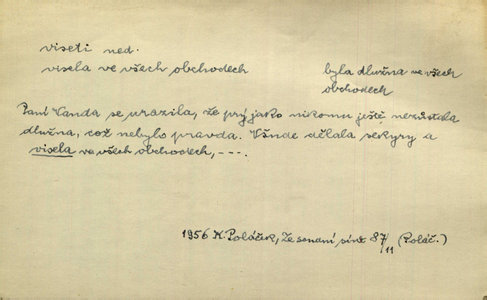 viseti ned.
visela ve všech obchodech
byla dlužna ve všech
obchodech
Paní Vanda se urazila, že prý jako nikomu ještě nezůstala
dlužna, což nebylo pravda. Všude dělala sekyry a
visela ve všech obchodech, ---.
1956 K. Poláček, Ze soudní síně 87/11 (Poláč.)